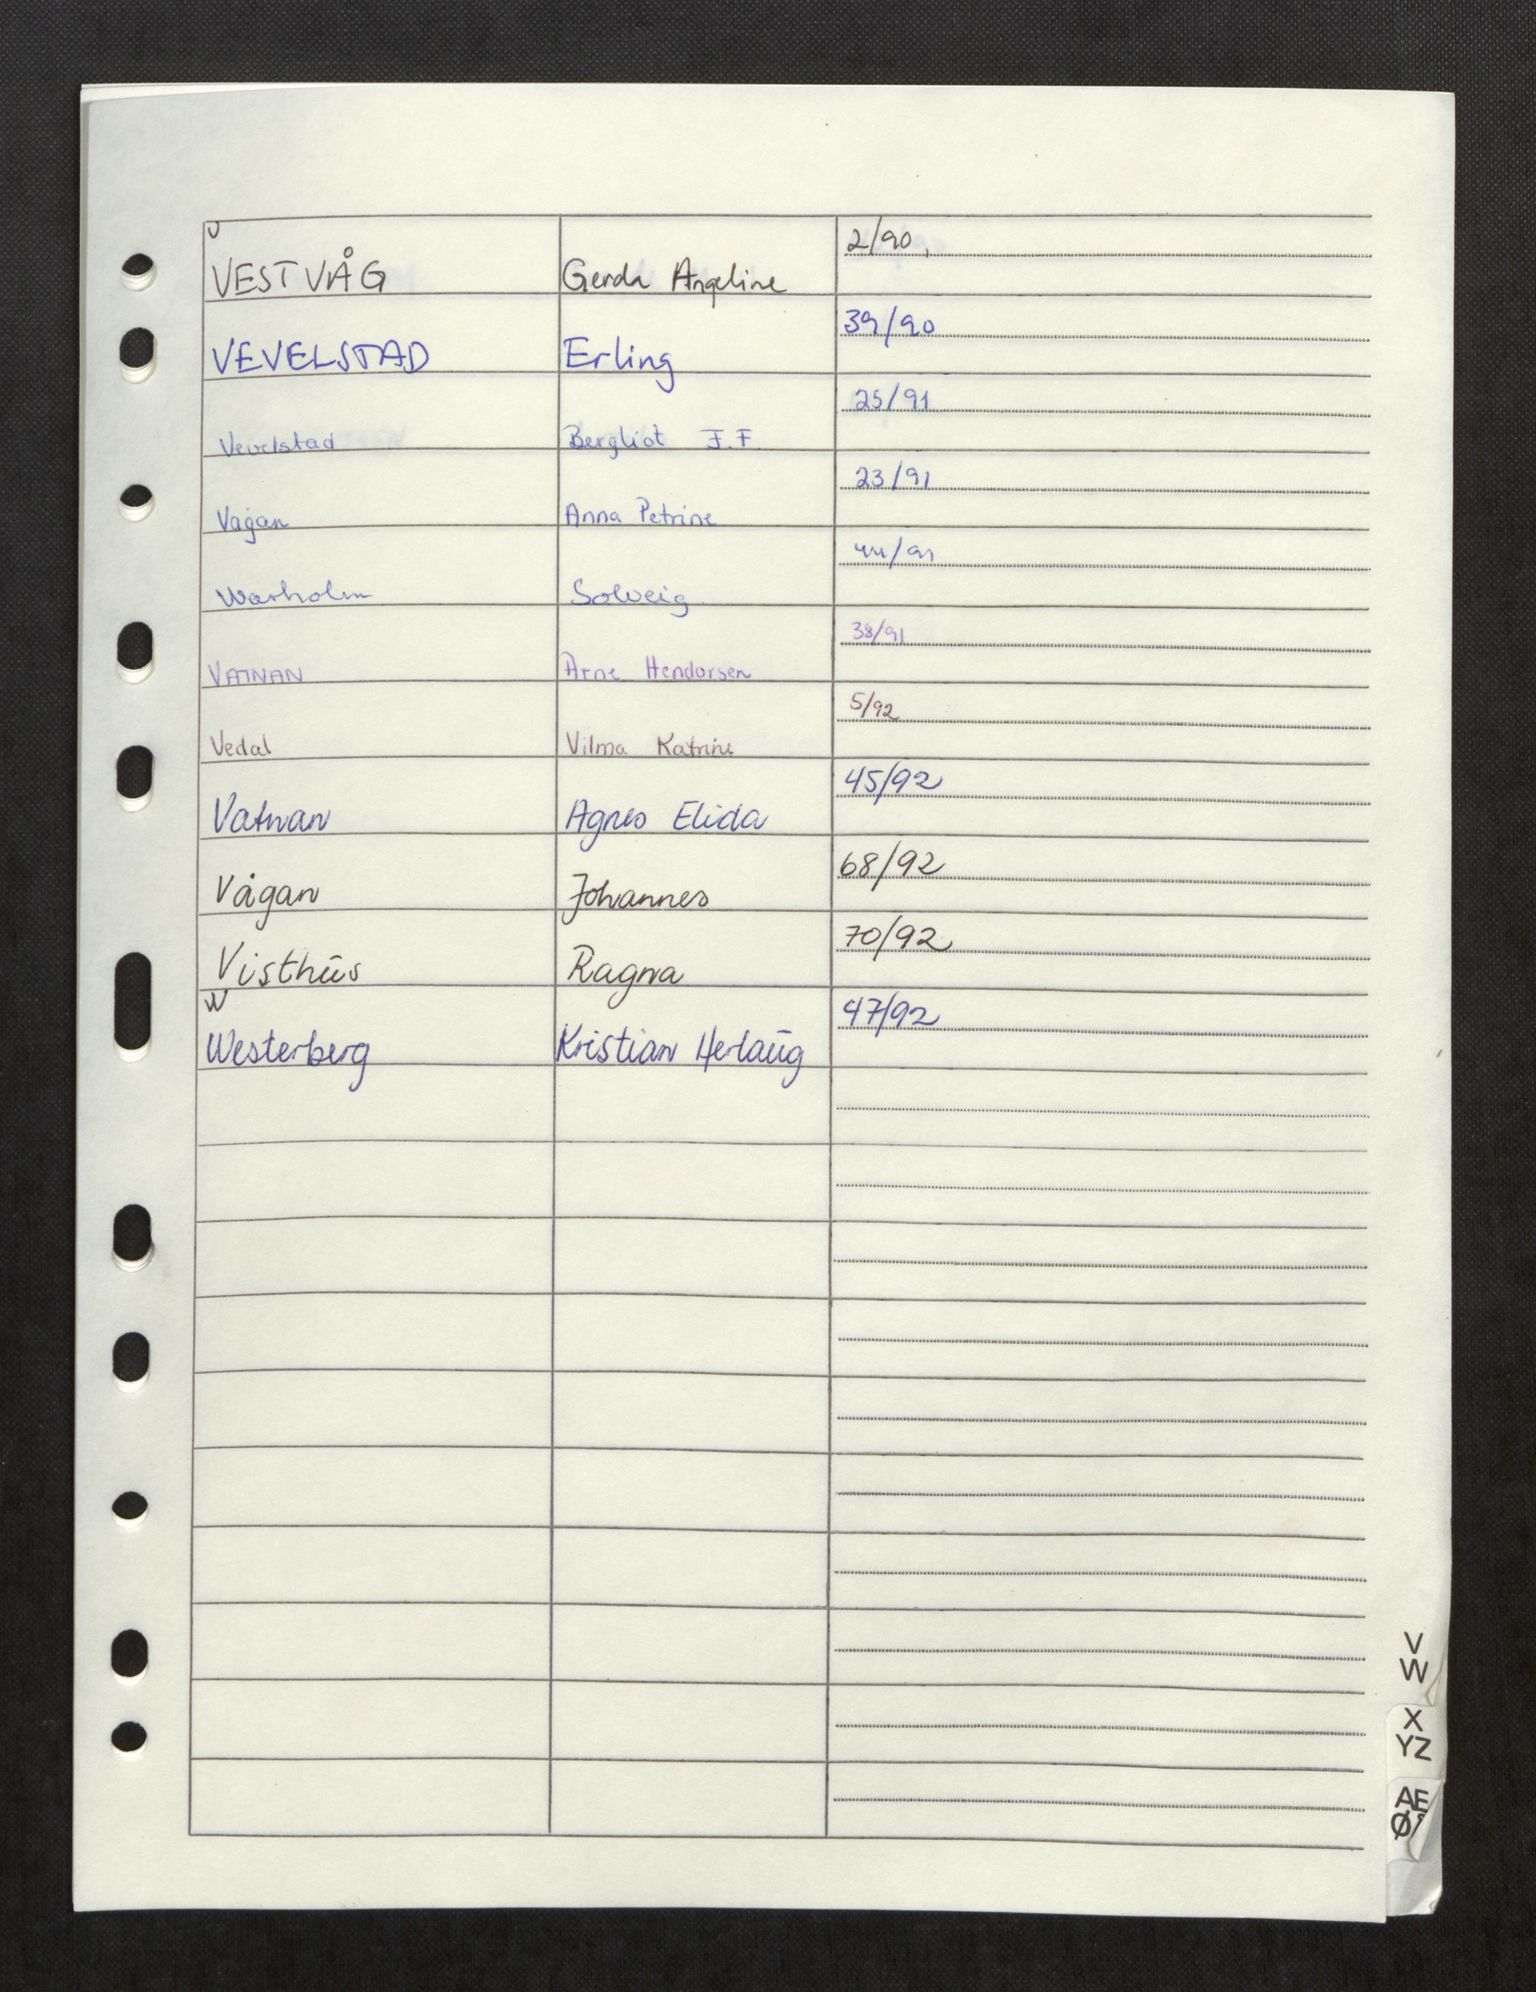 V
VESTVÅG Gerda Angeline 2/90.
VEVELSTAD Erling 39/90
Vevelstad Bergliot F.F. 25/91
Vågan Anna Petrine 23/91
Warholm Solveig 44/91
VATNAN Arne Hendorsen 38/91
Vedal Vilma Katrine 5/92
Vatnan Agnes Elida 45/92
Vågan Johannes 68/92
Visthūs Ragna 70/92
W
Westerberg Kristian Herlaūg 47/92
V
W
X
YZ
AE
Ø